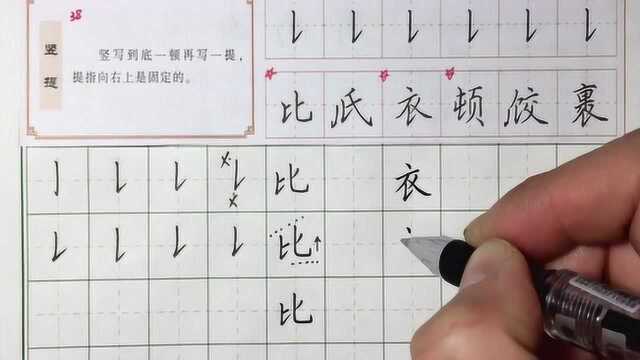 38
竖提
竖写到底一顿再写一提，
提指向右上是固定的。
比 氏 衣 顿 佼 裹
比 衣
比
比